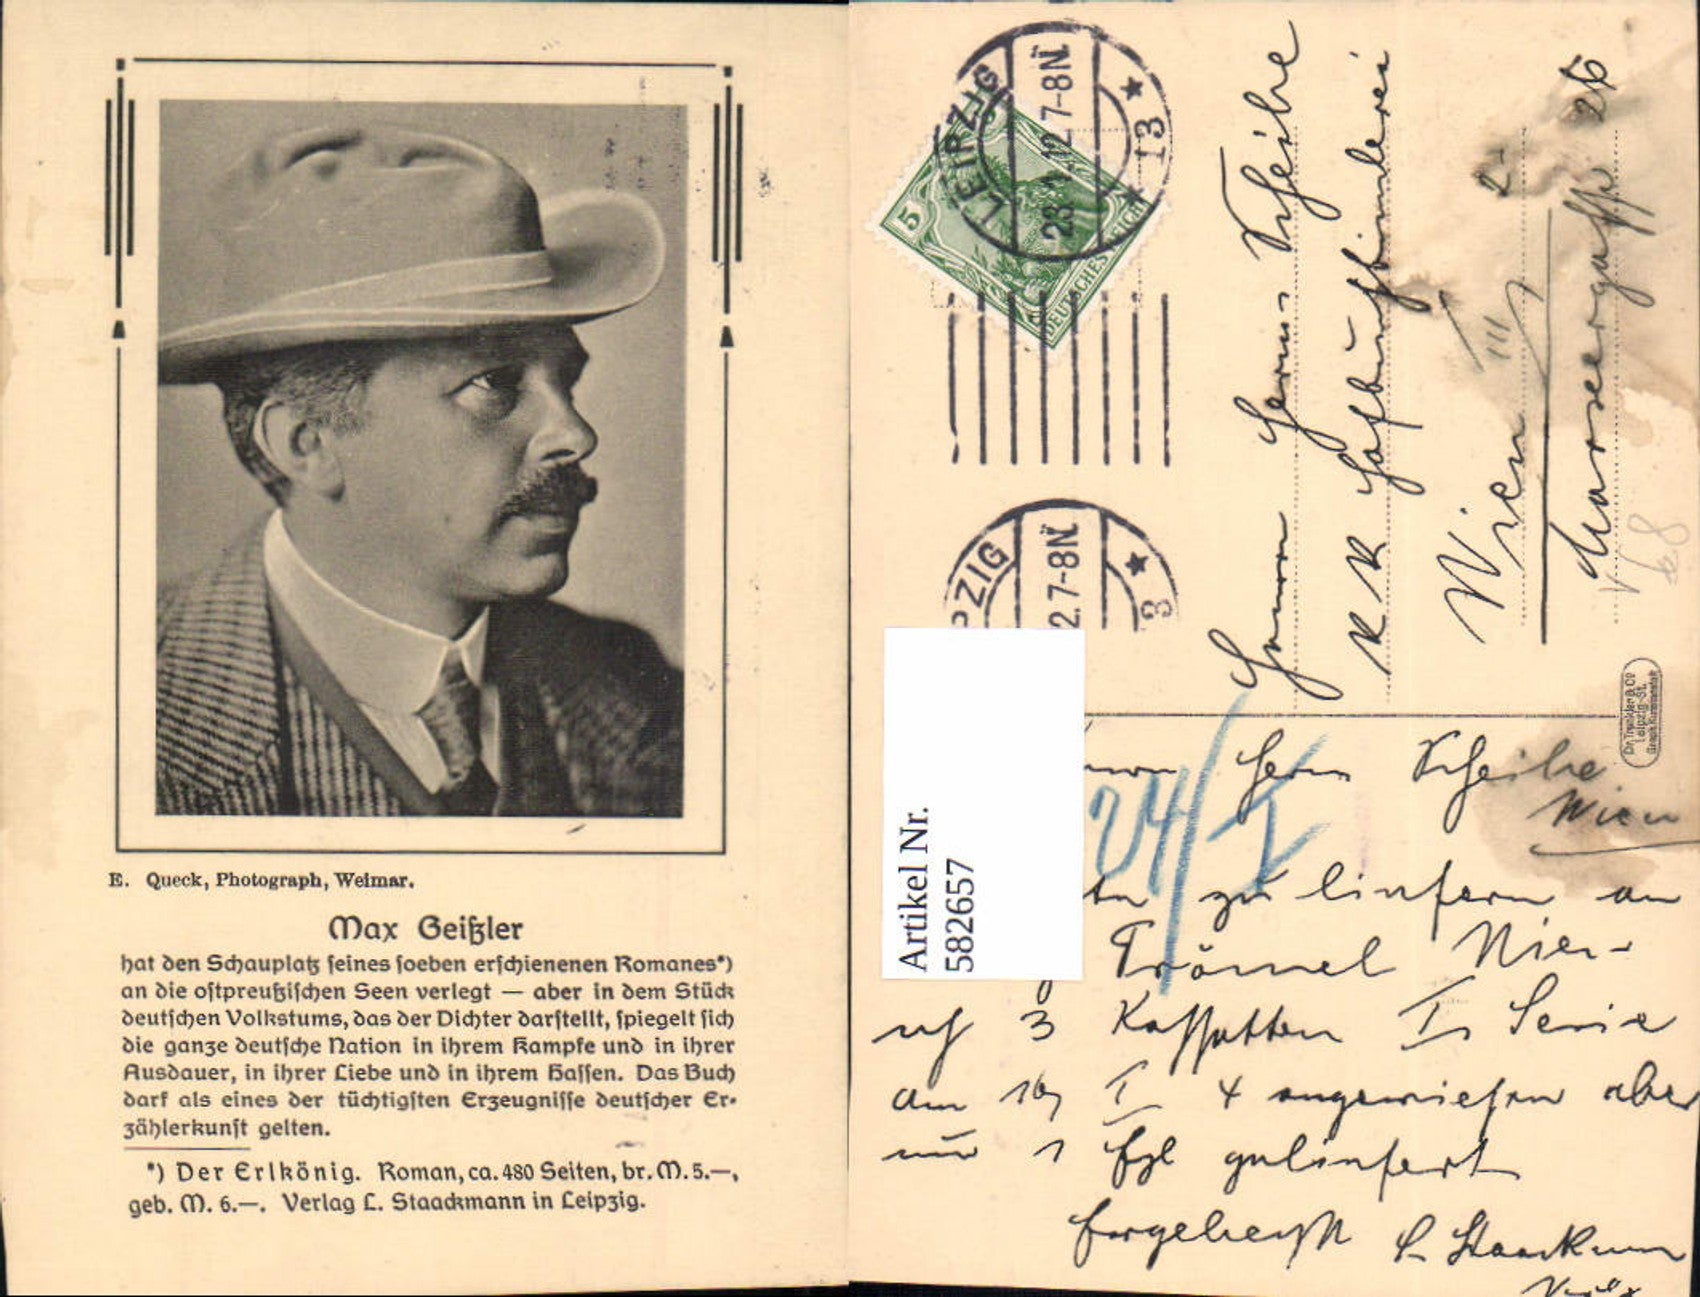 E. Queck, Photograph, Weimar.
Max Geißler
hat den Schauplatz seines soeben erschienenen Romanes*)
an die ostpreußischen Seen verlegt — aber in dem Stück
deutschen Volkstums, das der Dichter darstellt, spiegelt sich
die ganze deutsche Nation in ihrem Kampfe und in ihrer
Ausdauer, in ihrer Liebe und in ihrem Hassen. Das Buch
darf als eines der tüchtigsten Erzeugnisse deutscher Er-
zählerkunst gelten.
*) Der Erlkönig. Roman, ca. 480 Seiten, br. M. 5.—,
geb. M. 6.—. Verlag L. Staackmann in Leipzig.
LEIPZIG
12 7-8N.
★ 13 ★
5
DEUTSCHES REICH
PZIG
2. 7-8N.
★ 3
Herrn Scheibe
K K Hofbuchbinderei
Wien III
Marxergasse 25
Dr. Trenkler & Co
Leipzig-St.
Graph. Kunstanstalt
Artikel Nr.
582657
Herrn Scheibe
Wien
24/I
zu liefern an
Trömel Wien
3 Kassetten I. Serie
am 10/I 4 angewiesen aber
nur 1 Expl geliefert
Ergebenst L Staackmann